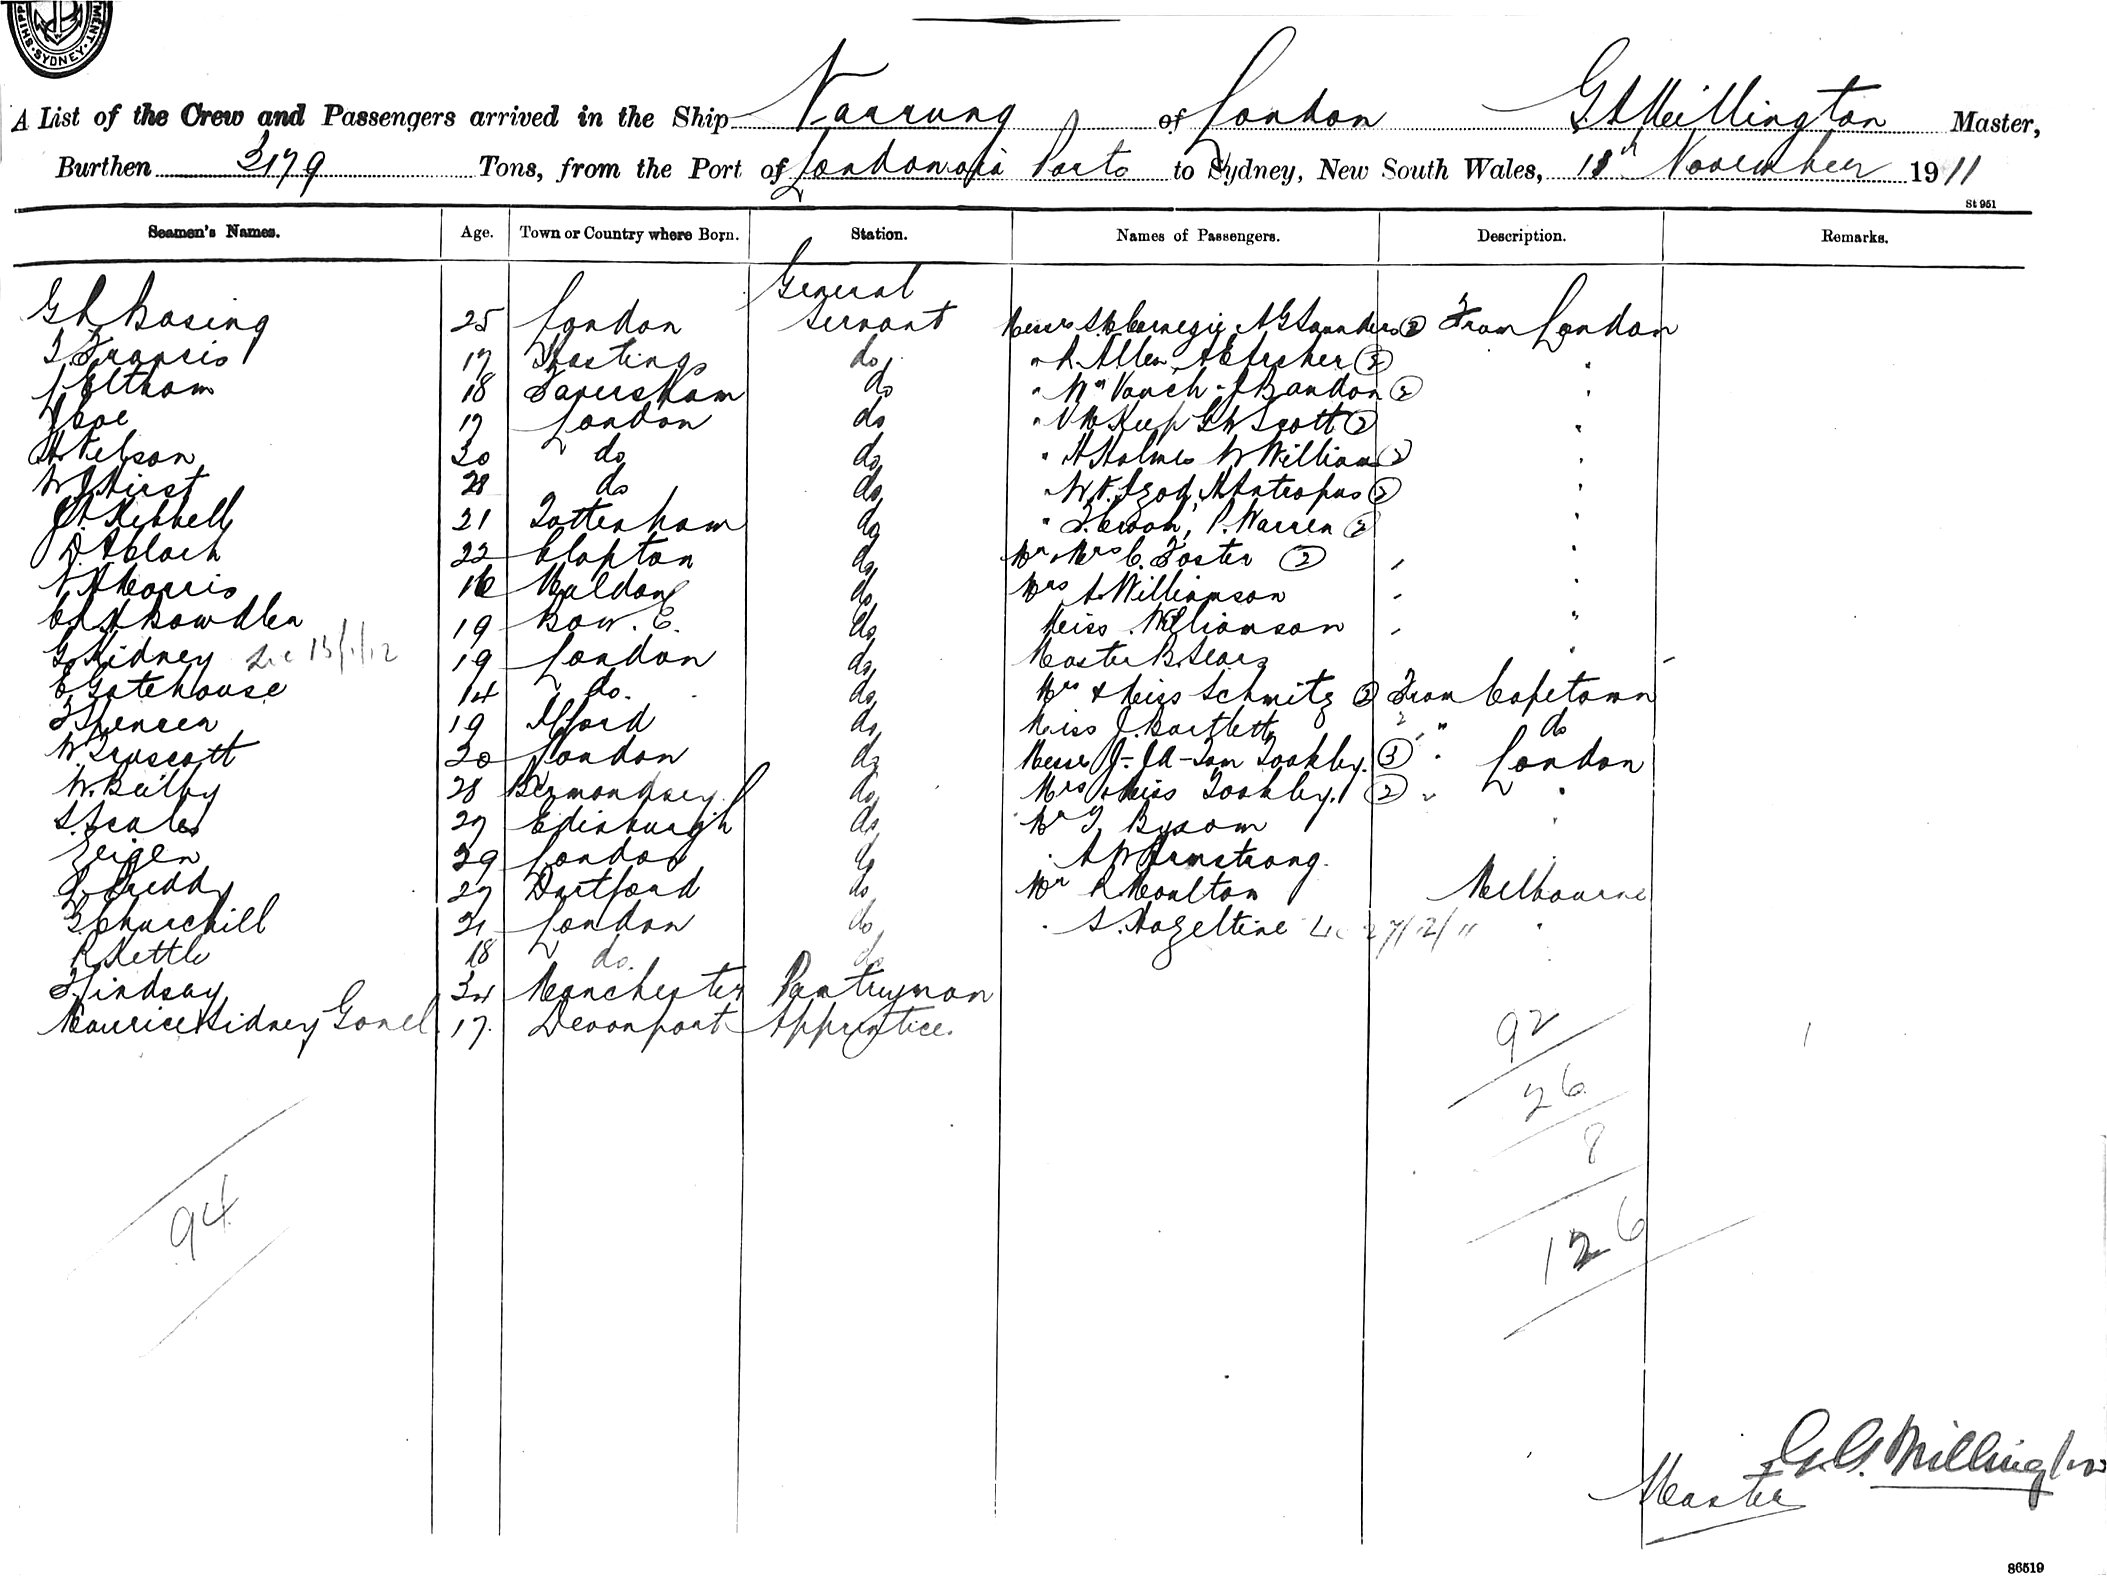 SHIPP MENT. SYDNEY.
A List of the Crew and Passengers arrived in the Ship Narrung of London G A Millington Master,
Burthen 3179 Tons, from the Port of London via Ports to Sydney, New South Wales, November 1911
St 951
Seamen's Names. Age. Town or Country where Born. Station. Names of Passengers. Description. Remarks.
General
Basing 25 London Servant Messrs Carnegie A G Saunders 2 From London
Francis 17 Hastings do " Allen 2 "
Eltham 18 Faversham do " 2 "
17 London do " Scott 2 "
Nelson 30 do do " H Holmes W Williams 2 "
W J Hirst 28 do do " 2 "
Kibbell 21 Tottenham do " P. Warren 2 "
22 Clapton do Mr Mrs C. Foster 2 " "
Morris 16 Maldon do Mrs A Williamson " "
Bowdler 19 Bow. E. do Miss Williamson " "
G Kidney 13/1/12 19 London do Master B. Sears "
E Gatehouse 14 do. do Mrs & Miss Schmitz 2 From Capetown
Spencer 19 Ilford do Miss J. Bartlett " " do
W Truscott 20 London do Messrs J - J A - Tom 3 " London
W. Bilby 28 Bermondsey do Mrs & Miss 2 " "
S. Scales 27 Edinburgh do Mr "
Zeigen 29 London do " A W Armstrong. "
Priddy 27 Dartford do Mr R Moulton Melbourne
Churchill 21 London do " S. Hazeltine 27/12/11 "
R Kettle 18 do. do
Lindsay 34 Manchester Pantryman
Maurice Sidney 17. Devonport Apprentice.
92
26
8
94
126
G. A. Millington
Master
86519